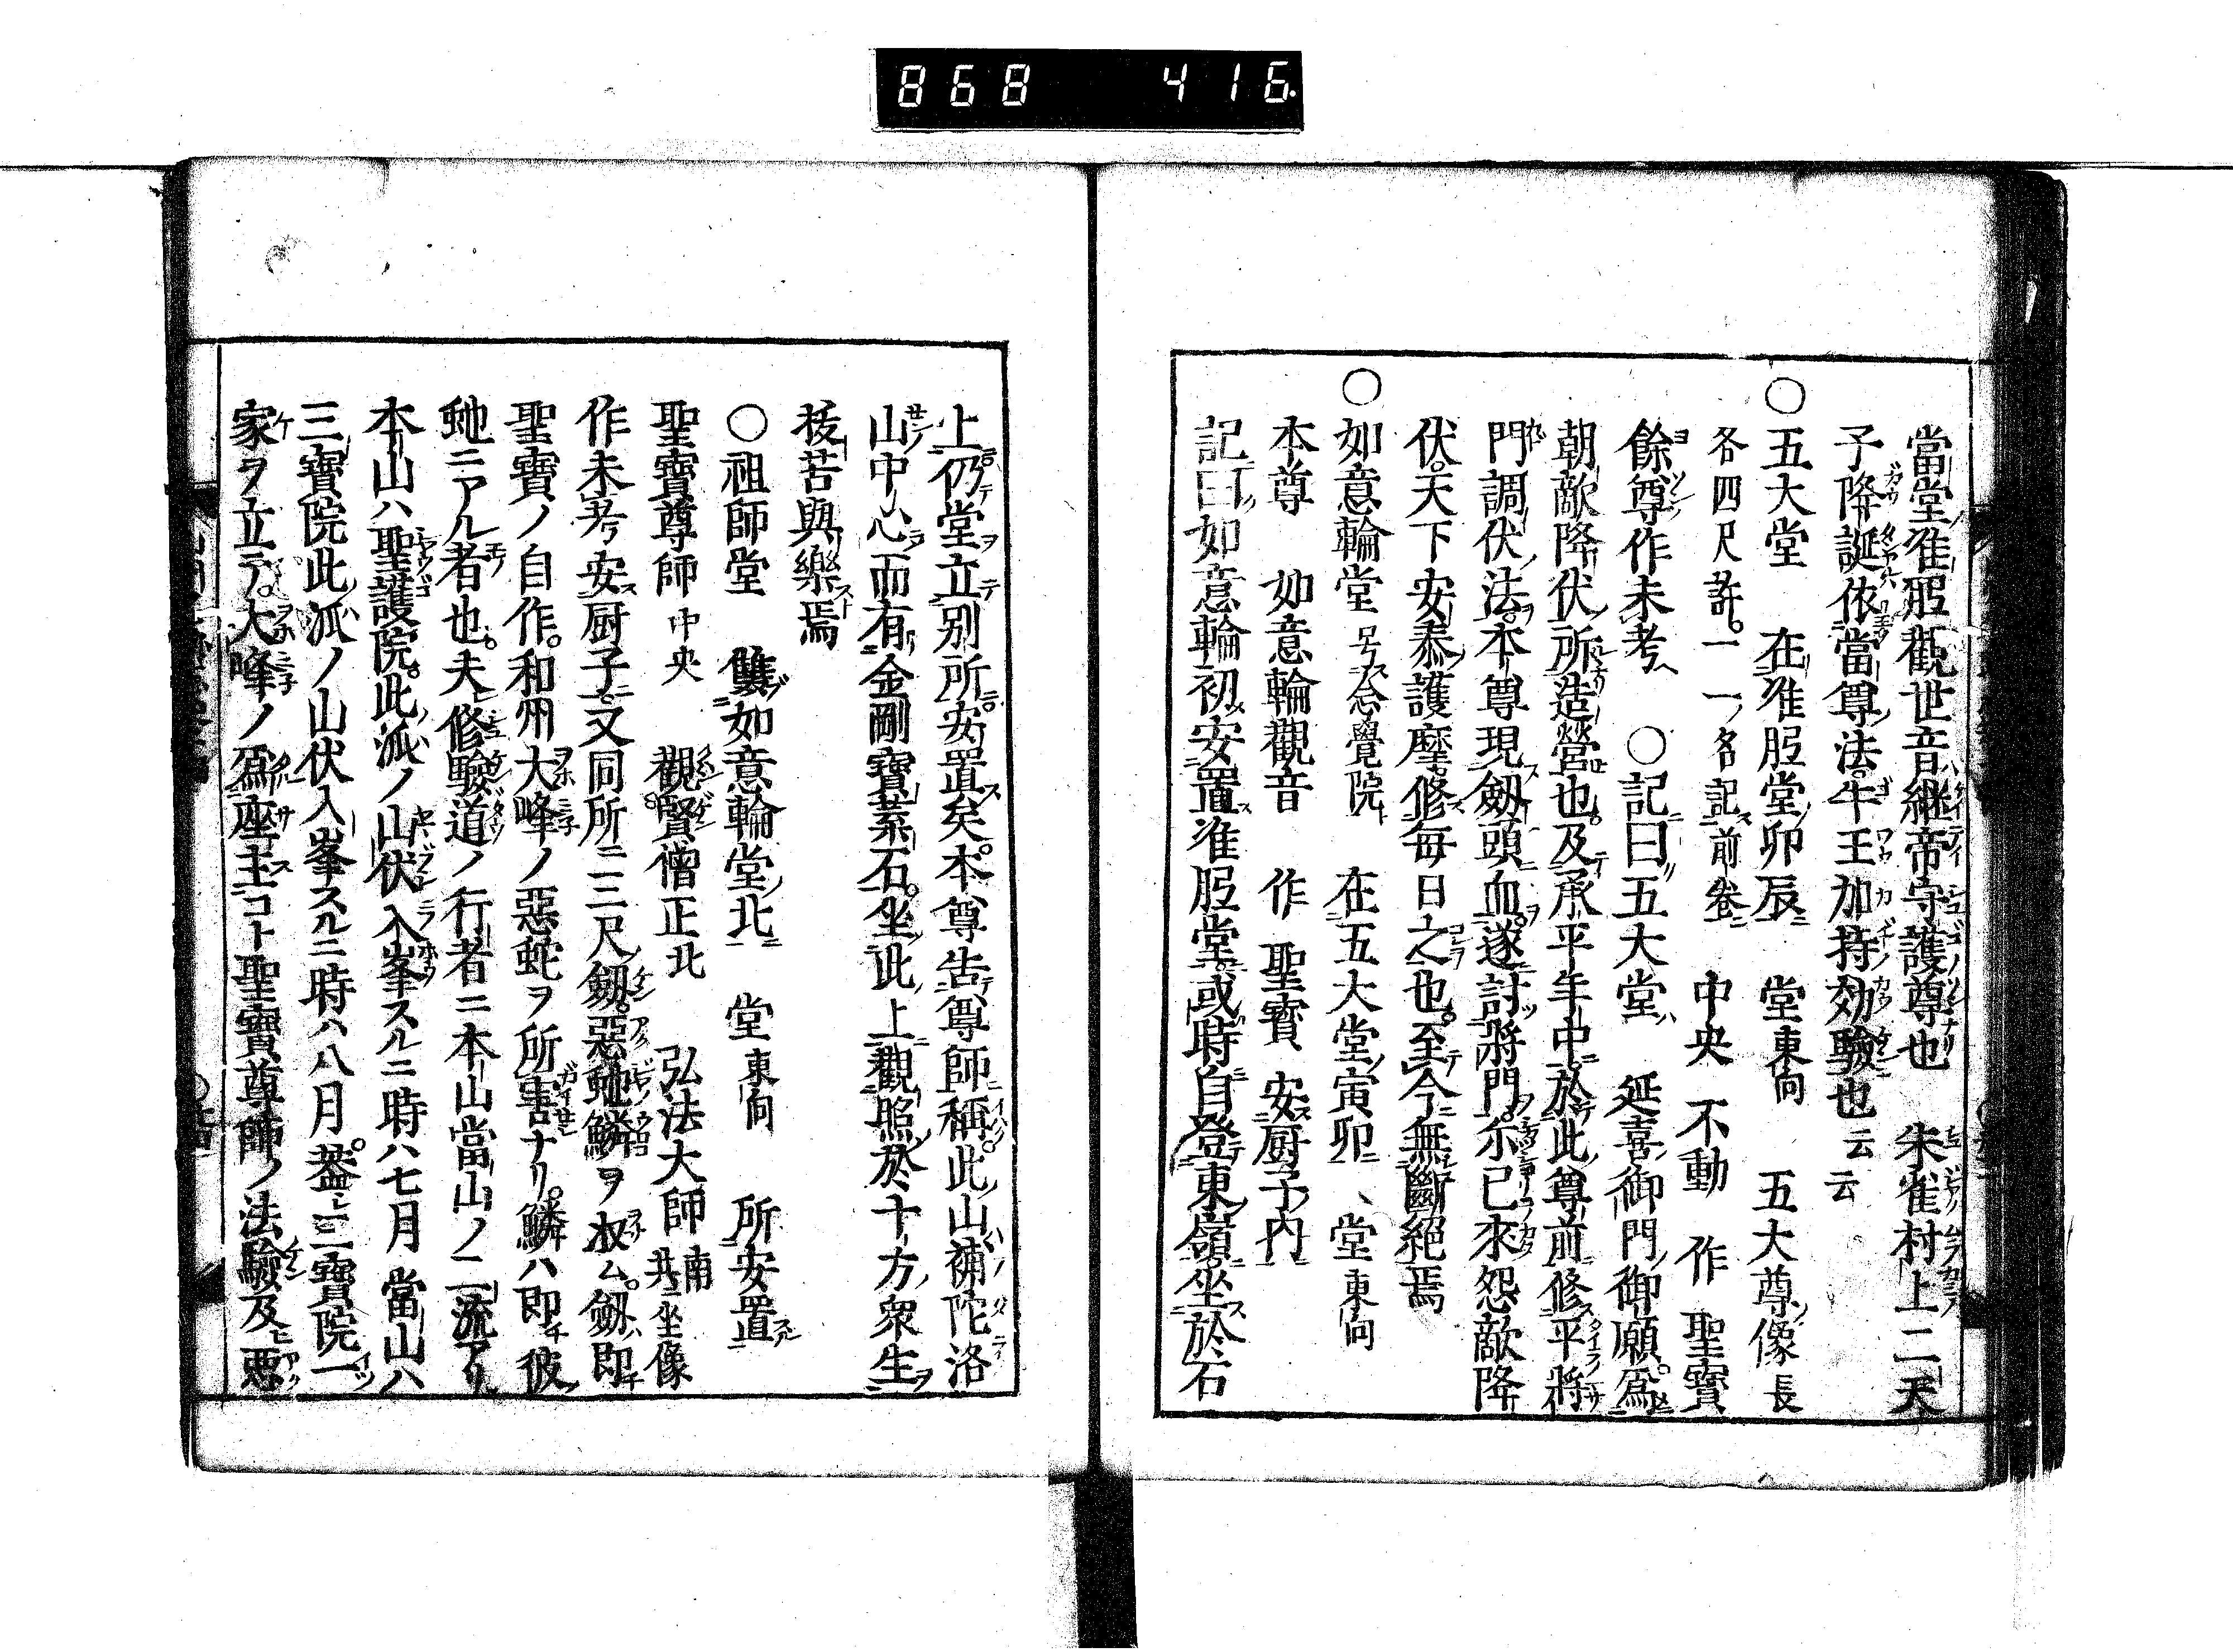 868 416
當堂准胝觀世音繼帝守護尊也 朱雀村上二天
子降誕依當尊法牛王加持効驗也云云
○五大堂 在准胝堂卯辰 堂東向 五大尊像長
各四尺許一一名記前卷 中央不動 作 聖寶
餘尊作未考 ○記曰五大堂ハ 延喜御門御願爲
朝敵降伏所造營也及承平年中於此尊前修平將
門調伏法本尊現劔頭血遂討將門尓已來怨敵降
伏天下安泰護摩修每日之也至今無斷絕焉
○如意輪堂 号念覺院 在五大堂寅卯 堂東向
本尊 如意輪觀音 作 聖寶 安厨子内
記曰如意輪初安置准胝堂或時自登東嶺坐於石
上仍堂立別所安置矣本尊告尊師稱此山補陀洛
山中心而有金剛寶葉石坐此上觀照於十方衆生
拔苦與樂焉
○祖師堂 雙如意輪堂北 堂東向 所安置
聖寶尊師 中央 觀賢僧正 北 弘法大師 南 共坐像
作未考安厨子又同所ニ三尺劔惡虵鱗ヲ収ム劔即
聖寶ノ自作和州大峰ノ惡蛇ヲ所害ナリ鱗ハ即彼
虵ニアル者也夫修驗道ノ行者ニ本山當山ノ二流アリ
本山ハ聖護院此派ノ山伏入峯スルニ時ハ七月當山ハ
三寶院此派ノ山伏入峯スルニ時ハ八月蓋三寶院一
家ヲ立テ大峰ノ爲座主コト聖寶尊師ノ法驗及惡